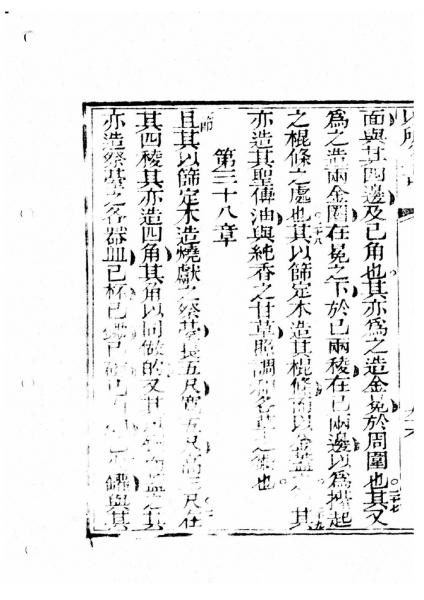 面與其四邊及已角也。其亦爲之造金冕於周圍也。其又
爲之造兩金圈在冕之下於已兩稜在已兩邊以爲擡起
之棍條之處也。其以篩定木造其棍條而以金蓋之。其
亦造其聖傅油與純香之甘草照調和名草之術也。
第三十八章
且其以篩定木造燒獻之祭基長五尺寬五尺高三尺在
其四稜其亦造四角其角以同做的又其以蓋之其
亦造祭基之各器皿已杯已與其